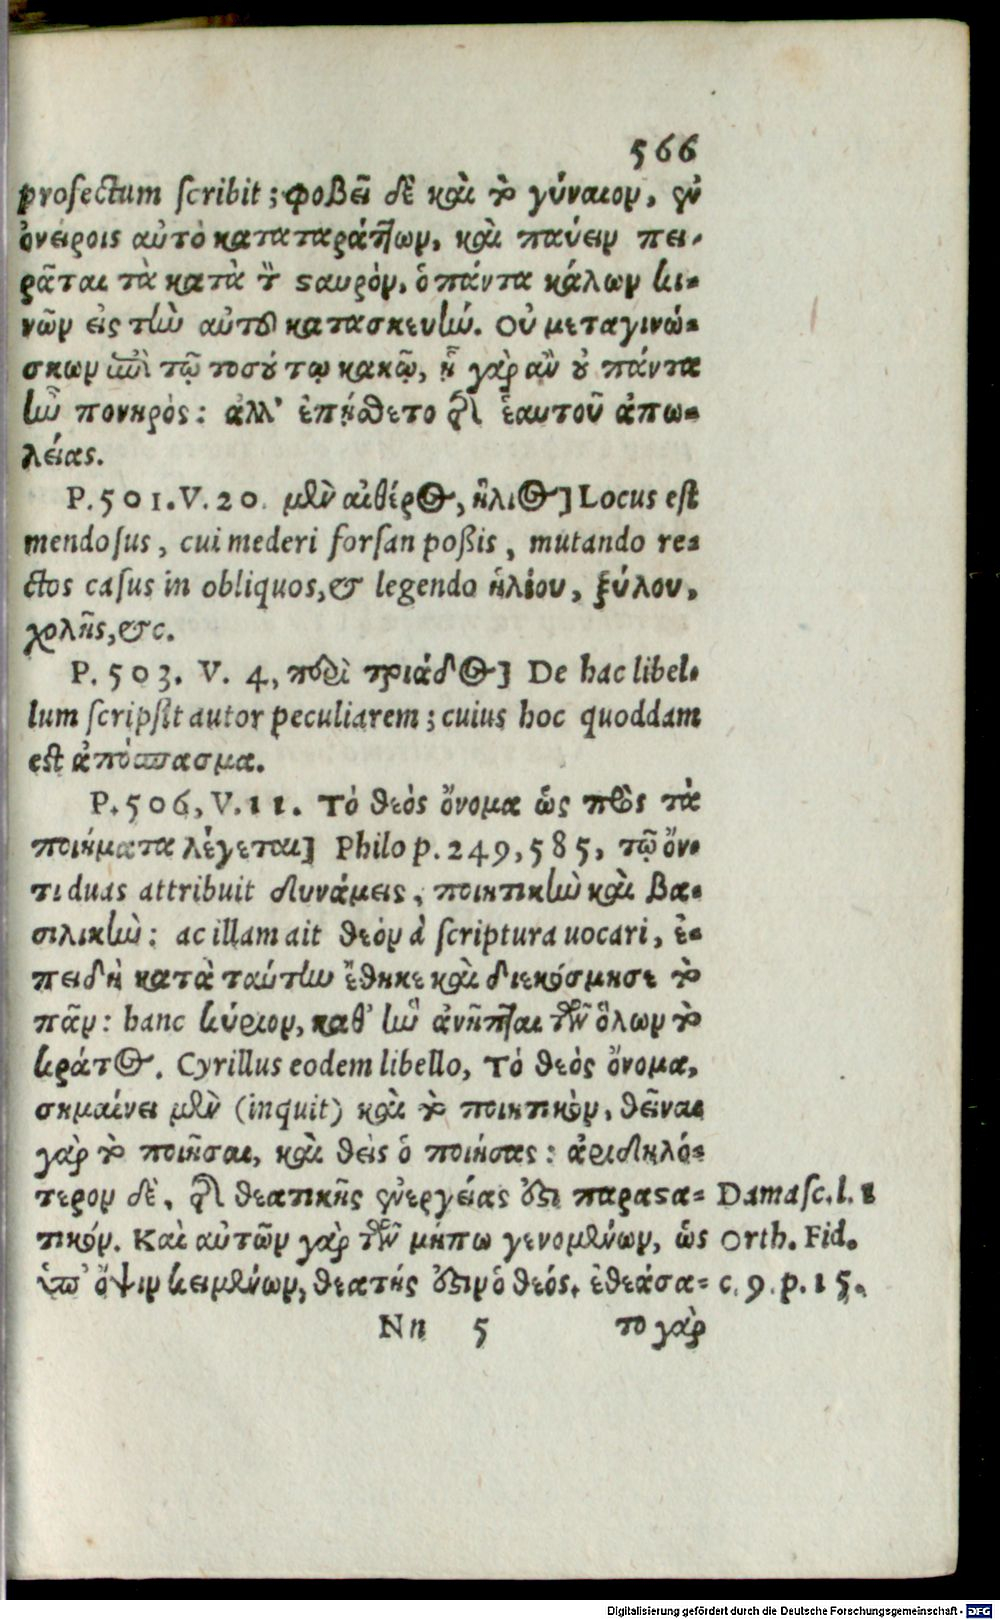 566
profectum scribit; φοβεῖ δὲ καὶ τὸ γύναιον, ἐν
ὀνείροις αὐτὸ καταταράττων, καὶ παύειν πει-
ρᾶται τὰ κατὰ τὸν σαυρὸν, ὁ πάντα κάλων κι-
νῶν εἰς τὴν αὐτοῦ κατασκευήν. Οὐ μεταγινώ-
σκων ἐπὶ τῷ τοσούτῳ κακῷ, ἦ γὰρ ἂν οὐ πάντα
ἦν πονηρὸς: ἀλλ' ἐπῄσθετο τῆς ἑαυτοῦ ἀπω-
λείας.
P. 501. V. 20. μὲν αἰθέρος, ἥλιος] Locus est
mendosus, cui mederi forsan poßis, mutando re-
ctos casus in obliquos, & legendo ἡλίου, ξύλου,
χολῆς, &c.
P. 503. V. 4, περὶ τριάδος] De hac libel-
lum scripsit autor peculiarem; cuius hoc quoddam
est ἀπόσπασμα.
P. 506, V. 11. Τὸ θεὸς ὄνομα ὡς πρὸς τὰ
ποιήματα λέγεται] Philo p. 249, 585, τῷ ὄν-
τι duas attribuit δυνάμεις, ποιητικὴν καὶ βα-
σιλικὴν: ac illam ait θεόν à scriptura uocari, ἐ-
πειδὴ κατὰ ταύτην ἔθηκε καὶ διεκόσμησε τὸ
πᾶν: hanc κύριον, καθ' ἣν ἀνῆπται τῶν ὅλων τὸ
κράτος. Cyrillus eodem libello, Τὸ θεὸς ὄνομα,
σημαίνει μὲν (inquit) καὶ τὸ ποιητικὸν, θεῖναι
γὰρ τὸ ποιῆσαι, καὶ θεὶς ὁ ποιήσας: ἀριδηλό-
τερον δὲ, τῆς θεατικῆς ἐνεργείας ἐστὶ παραστα- Damasc. l. 1
τικόν. Καὶ αὐτῶν γὰρ τῶν μήπω γενομένων, ὡς Orth. Fid.
ὑπ' ὄψιν κειμένων, θεατής ἐστιν ὁ θεός. ἐθεάσα- c. 9. p. 15.
Nn 5 το γὰρ
Digitalisierung gefördert durch die Deutsche Forschungsgemeinschaft - DFG